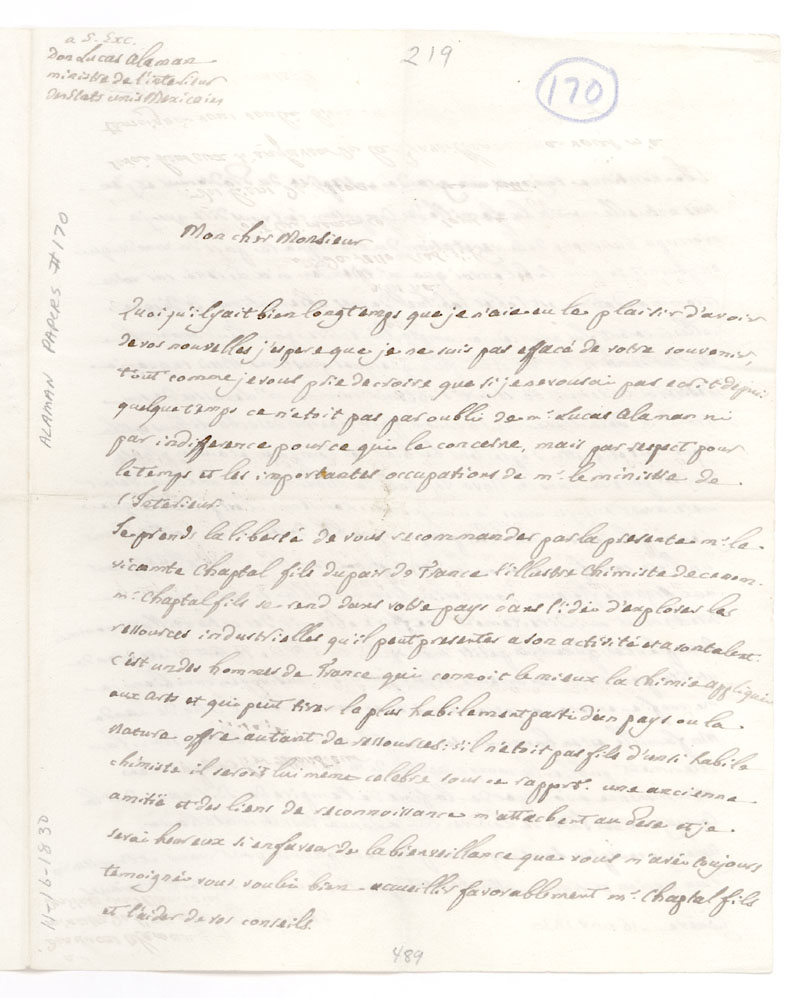 a S. Exc.
Don Lucas Alaman
ministre de l'interieur
des Etats unis Mexicains
219
170
ALAMAN PAPERS #170
Mon cher Monsieur
Quoiqu'il y ait bien longtemps que je n'aie eu le plaisir d'avoir
de vos nouvelles j'espere que je ne suis pas effacé de votre souvenir,
tout comme je vous prie de croire que si je ne vous ai pas ecrit depuis
quelque temps ce n'etoit pas par oubli de mr. Lucas Alaman ni
par indifference pour ce qui le concerne, mais par respect pour
le temps et les importantes occupations de mr. le ministre de
l'Interieur.
Je prends la liberté de vous recommander par la presente mr. le
vicomte Chaptal fils du pair de France l'illustre Chimiste de ce nom.
mr. Chaptal fils se rend dans votre pays dans l'idée d'explorer les
ressources industrielles qu'il peut presenter a son activité et a son talent.
c'est un des hommes de France qui connoit le mieux la chimie appliquée
aux arts et qui peut tirer le plus habilement parti d'un pays ou la
nature offre autant de ressources: s'il n'etoit pas fils d'un si habile
chimiste il seroit lui meme celebre sous ce rapport. une ancienne
amitié et des liens de reconnoissance m'attachent au Pere et je
serai heureux si en faveur de la bienveillance que vous m'avez toujours
temoignée vous voulez bien accueillir favorablement mr. Chaptal fils
et l'aider de vos conseils.
11-16-1830
489